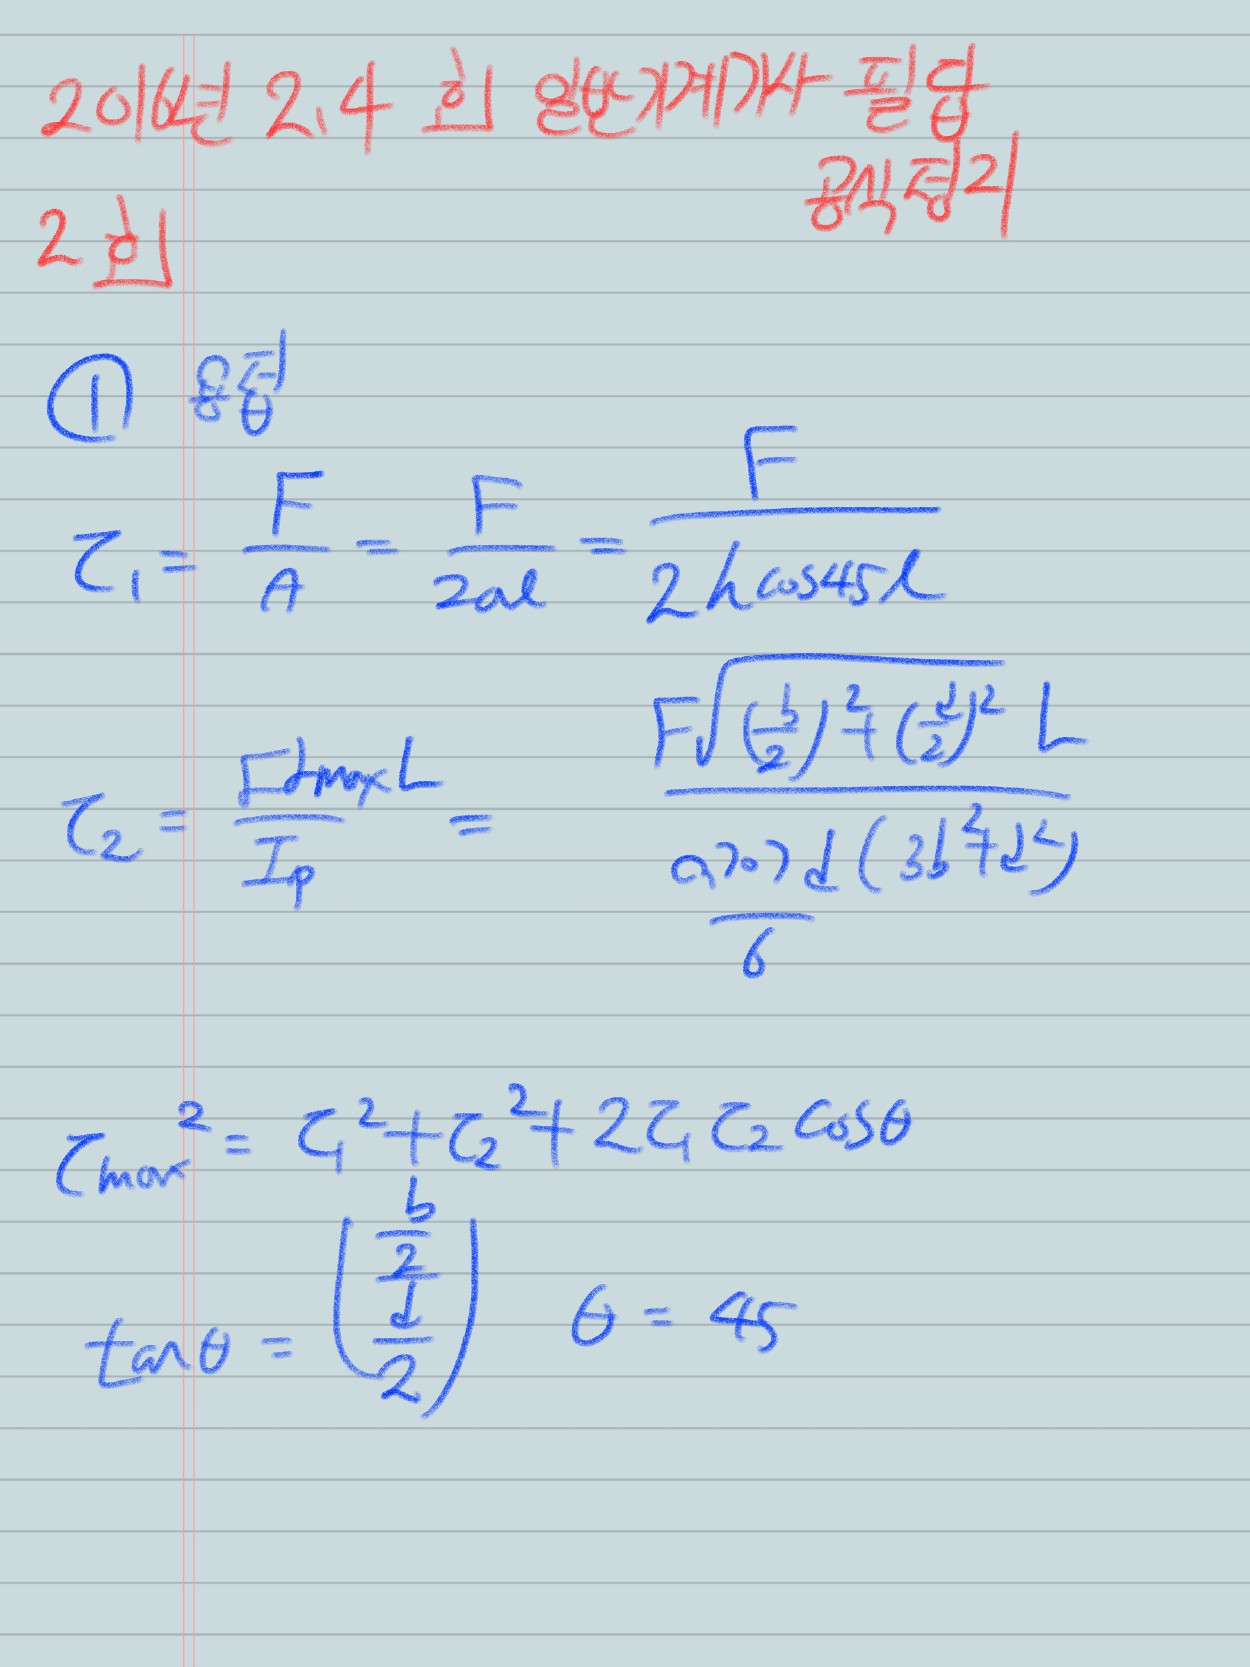 2.4회 일반기계기사 필답
공식정리
2회
① 용접
τ₁ = F/A = F/2al = F/(2hcos45l)
τ₂ = F dmax L/Ip = F√((b/2)²+(d/2)²) L / (0.707d(3b²+d²)/6)
τmax² = τ₁² + τ₂² + 2τ₁τ₂cosθ
tanθ = ((b/2)/(d/2)) θ = 45